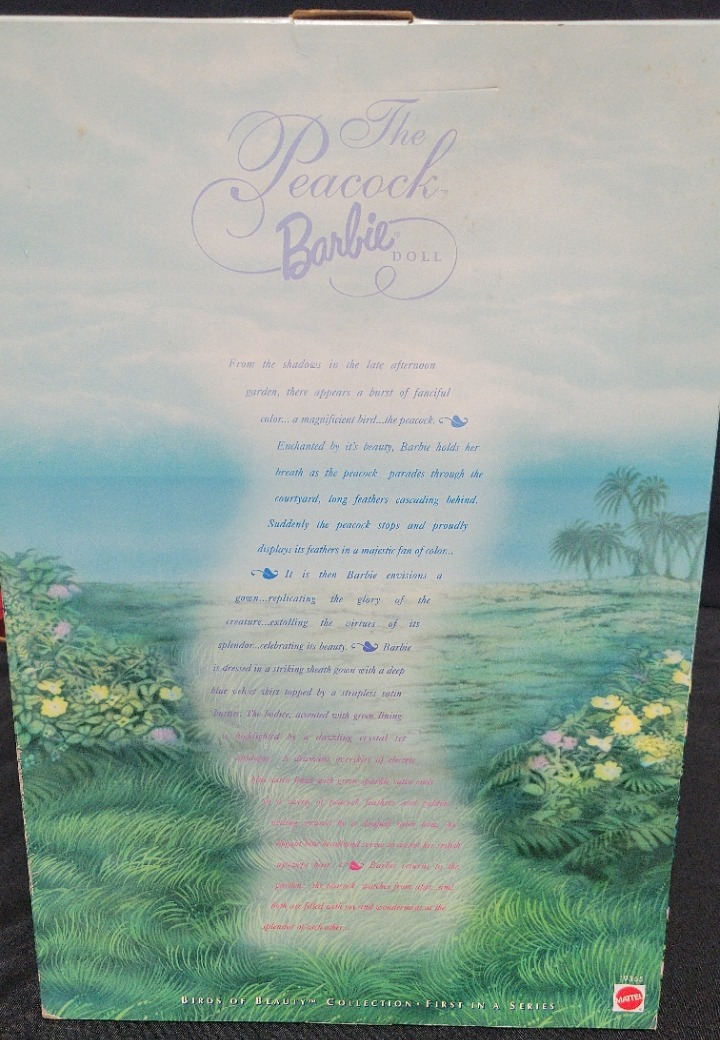 The
Peacock™
Barbie®
DOLL
From the shadows in the late afternoon
garden, there appears a burst of fanciful
color... a magnificient bird...the peacock.
Enchanted by it's beauty, Barbie holds her
breath as the peacock parades through the
courtyard, long feathers cascading behind.
Suddenly the peacock stops and proudly
displays its feathers in a majestic fan of color...
It is then Barbie envisions a
gown...replicating the glory of the
creature...extolling the virtues of its
splendor...celebrating its beauty. Barbie
is dressed in a striking sheath gown with a deep
blue velvet skirt topped by a strapless satin
bustier. The bodice, accented with green lining
is highlighted by a dazzling crystal
A dramatic overskirt of electric
blue satin lined with green sparkle
of peacock feathers and golden
hair. Barbie returns to the
garden. the peacock watches from afar and
both are filled with joy and wonderment at the
splendor of each other.
BIRDS OF BEAUTY™ COLLECTION • FIRST IN A SERIES
19365
MATTEL